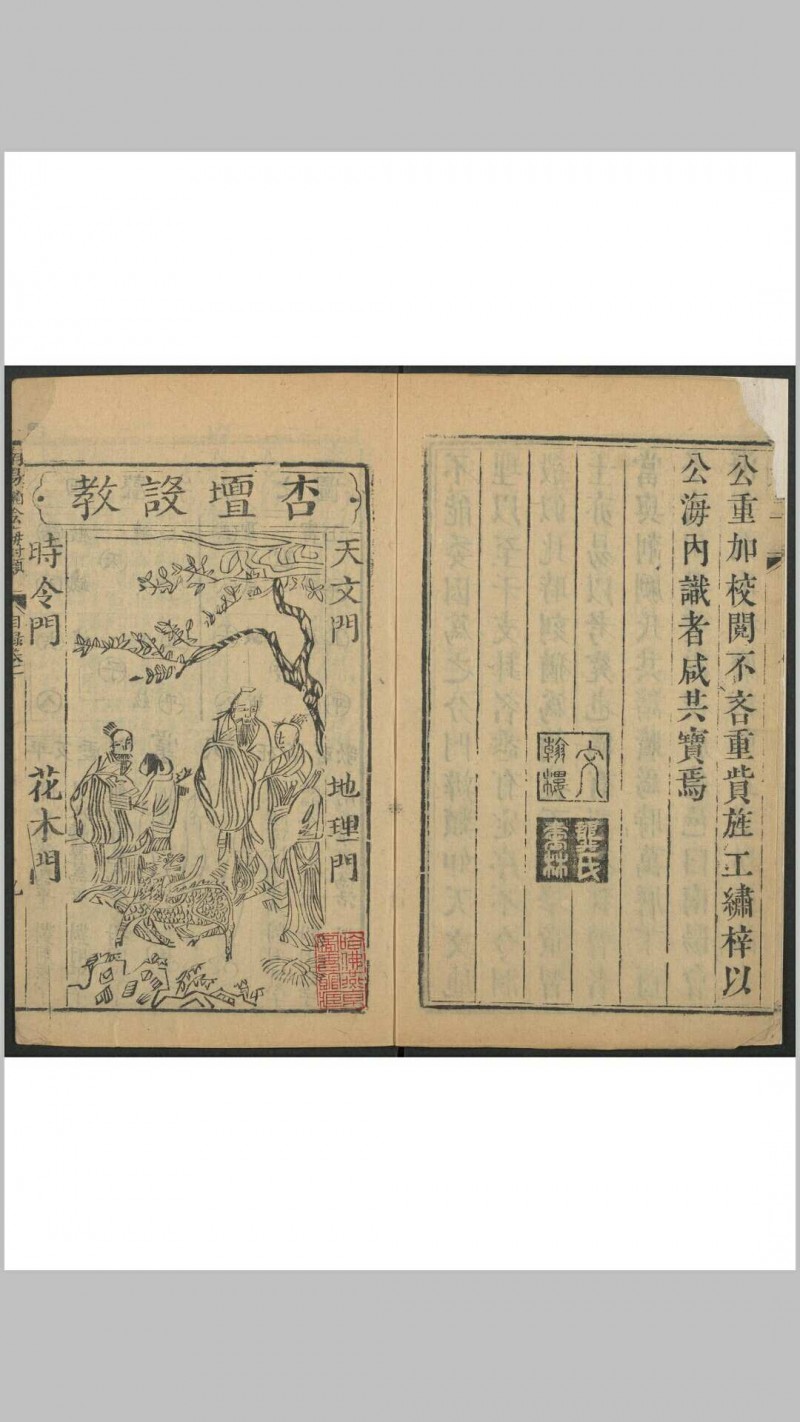 公重加校閱不吝重貲旌工繡梓以
公海內識者咸共寶焉
文
翰樓
龔氏
杏林
杏壇設教
天文門
地理門
時令門
花木門